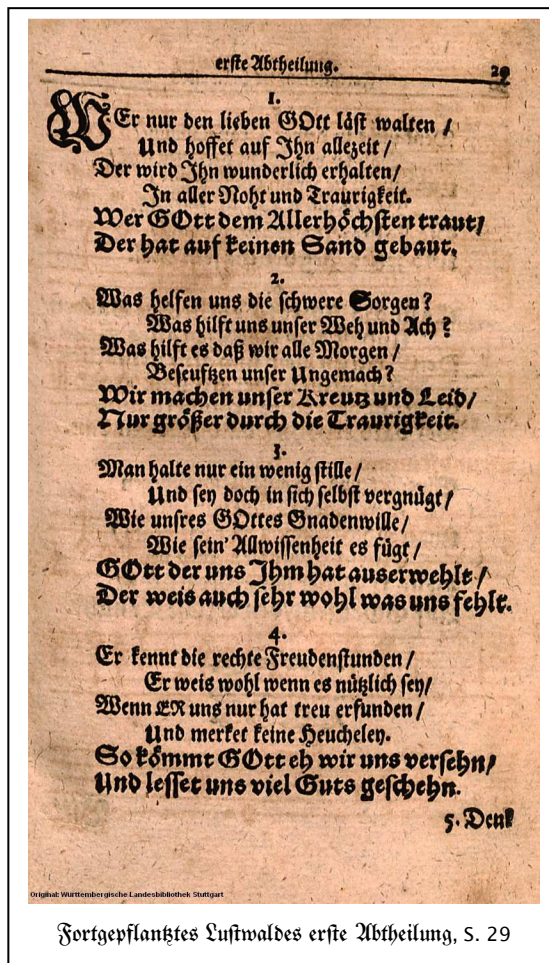 erste Abtheilung. 29
1.
WEr nur den lieben GOtt läst walten /
Und hoffet auf Ihn allezeit /
Der wird Ihn wunderlich erhalten/
In aller Noht und Traurigkeit.
Wer GOtt dem Allerhöchsten traut/
Der hat auf keinen Sand gebaut.
2.
Was helfen uns die schwere Sorgen?
Was hilft uns unser Weh und Ach?
Was hilft es daß wir alle Morgen /
Beseuftzen unser Ungemach?
Wir machen unser Kreutz und Leid/
Nur größer durch die Traurigkeit.
3.
Man halte nur ein wenig stille/
Und sey doch in sich selbst vergnügt/
Wie unsres GOttes Gnadenwille/
Wie sein' Allwissenheit es fügt/
GOtt der uns Ihm hat auserwehlt/
Der weis auch sehr wohl was uns fehlt.
4.
Er kennt die rechte Freudenstunden/
Er weis wohl wenn es nützlich sey/
Wenn ER uns nur hat treu erfunden/
Und merket keine Heucheley.
So kömmt GOtt eh wir uns versehn/
Und lesset uns viel Guts geschehn.
5. Denk
Original: Württembergische Landesbibliothek Stuttgart
Fortgepflantztes Lustwaldes erste Abtheilung, S. 29